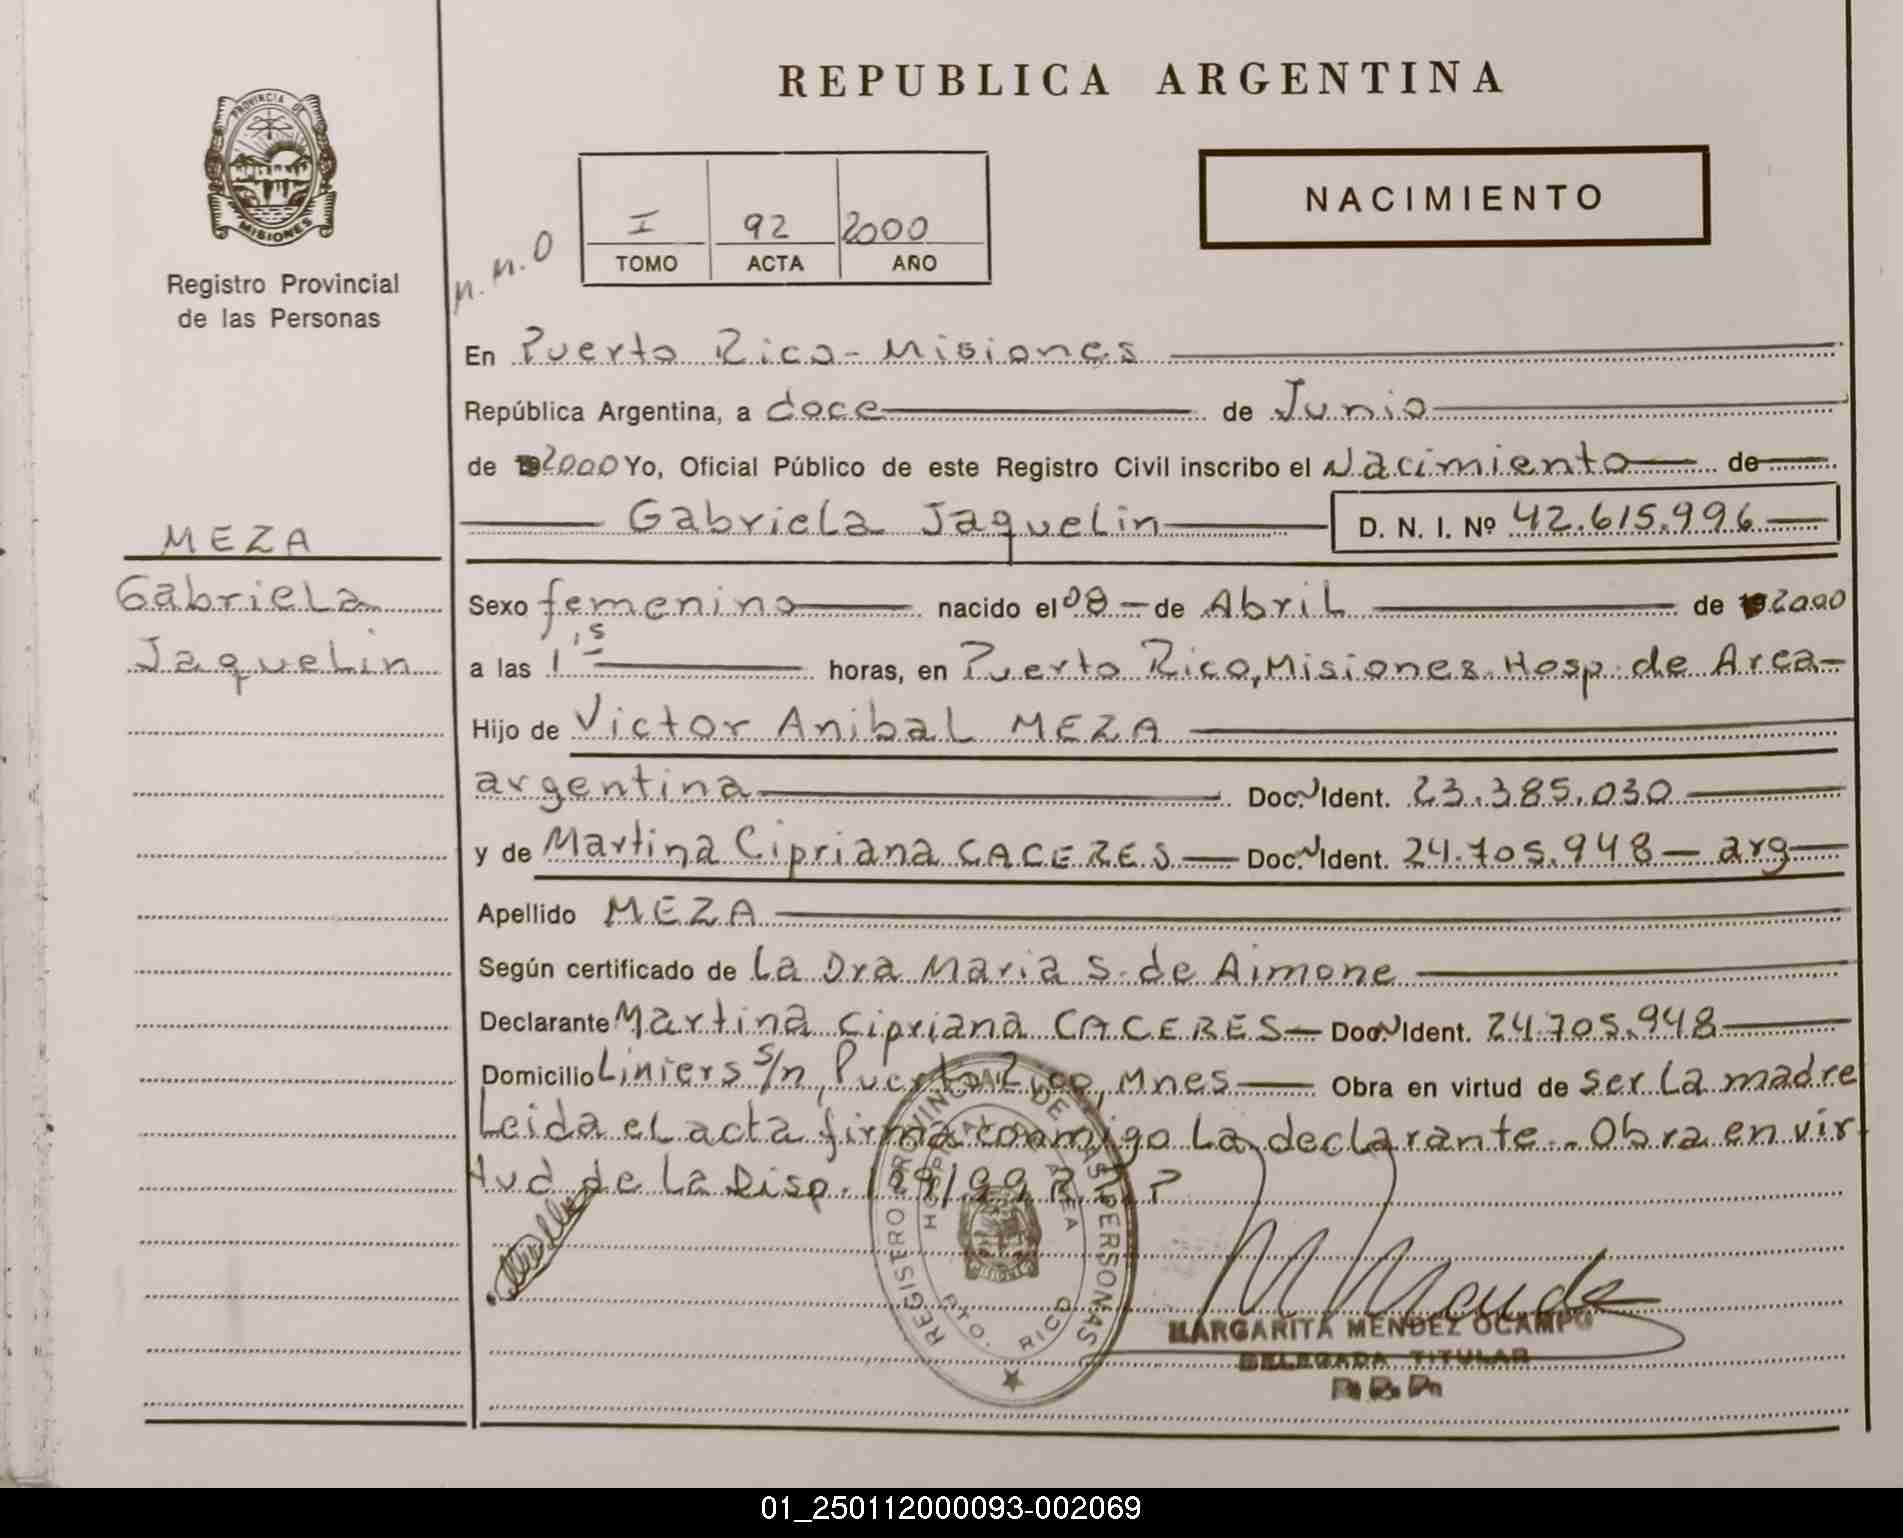 REPUBLICA ARGENTINA
PROVINCIA DE
MISIONES
Registro Provincial
de las Personas
NACIMIENTO
I 92 2000
TOMO ACTA AÑO
n.n.o
En Puerto Rico - Misiones
República Argentina, a doce de Junio
de 2000 Yo, Oficial Público de este Registro Civil inscribo el Nacimiento de
Gabriela Jaquelin D. N. I. Nº 42.615.996
MEZA
Gabriela
Jaquelin
Sexo femenino nacido el 08 - de Abril de 2000
a las 1,15 horas, en Puerto Rico, Misiones. Hosp. de Area -
Hijo de Victor Anibal MEZA
argentina Doc. N Ident. 23.385.030
y de Martina Cipriana CACERES - Doc. N Ident. 24.705.948 - arg
Apellido MEZA
Según certificado de la Dra Maria S. de Aimone
Declarante Martina Cipriana CACERES - Doc. N Ident. 24.705.948
Domicilio Liniers s/n, Puerto Rico, Mnes - Obra en virtud de ser la madre
Leida el acta firma conmigo la declarante.. Obra en vir
tud de la Disp.
REGISTRO PROVINCIAL DE LAS PERSONAS
HOSPITAL DE AREA
PTO. RICO
MISIONES
MARGARITA MENDEZ OCAMPO
DELEGADA TITULAR
01_250112000093-002069